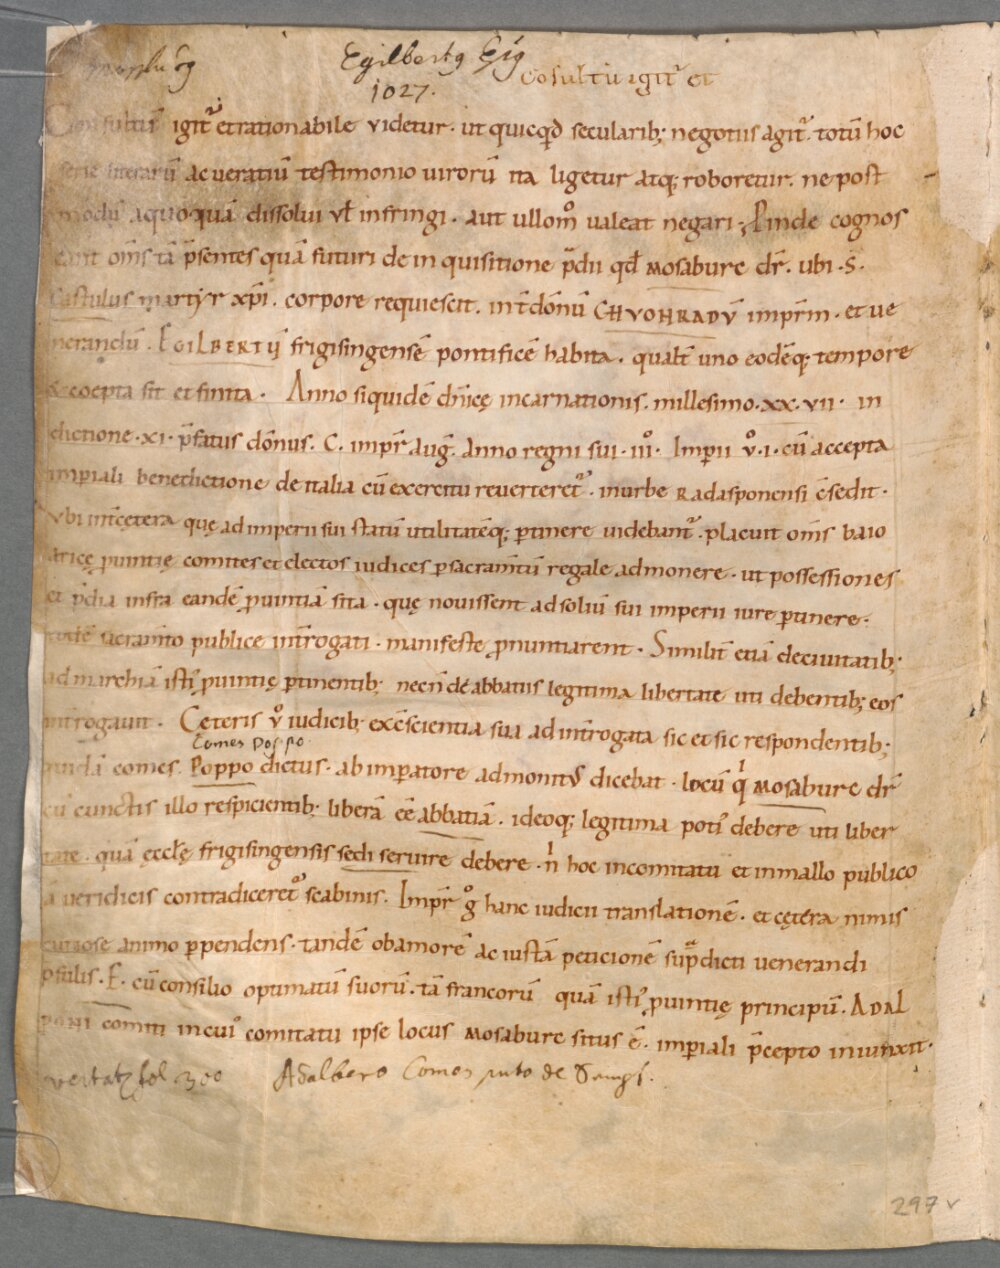 Egilbertꝰ Ep̄ꝰ
1027.
Cōsultū igit᷑ et
Consultum igit᷑ et rationabile videtur · ut quicqd̄ secularib; negotiis agit᷑ · totū hoc
serie literarū ac veratiū testimonio virorū ita ligetur atq; roboretur · ne post
modū a quoquā dissolvi vl̄ infringi · aut ullom̊ valeat negari · Proinde cognos
cant om̄s tā p̄sentes quā futuri de inquisitione p̄dii qd̄ Mosaburc dr̄ · ubi · S̄ ·
Castulus martyr xp̄i · corpore requiescit · int̄ dōnū CHVOHRADV̄ imp̄rm · et ve
nerandū · EGILBERTŪ frigisingensē pontificē habita · qualit̄ uno eodēq; tempore
& coepta sit et finita · Anno siquidē dn̄icę incarnationis · millesimo · xx · vii · in
dictione · xi · p̄fatus dōnus · C · imp̄r aug̅ · Anno regni sui · iii̊ · Imp̄ii v̊ · i · cū accepta
imp̄iali benedictione de italia cū exercitu revertereт᷑ · in urbe Radasponensi c̄sedit ·
Ubi int̄ cętera quę ad imperii sui statū utilitatēq; p̱tinere videbant᷑ · placuit om̄s baio
aricę ꝓvintię comites et electos iudices p̱ sacram̄tū regale admonere · ut possessiones
et p̄dia infra eandē ꝓvintiā sita · quę novissent ad soliū sui imperii iure p̱tinere ·
eodē sacram̄to publice int̄rogati · manifeste ꝓnuntiarent · Similit̄ etiā de civitatib;
ad marchiā isti᷒ ꝓvintię p̱tinentib; necn̄ de abbatiis legitima libertate uti debentib; eos
int̄rogavit · Cęteris v̊ iudicib; ex c̄scientia sua ad int̄rogata sic et sic respondentib;
Comes Poppo
quidā comes · Poppo dictus · ab imp̱atore admonitꝰ dicebat · locū qⁱ Mosaburc dr̄
cū cunctis illo respicientib; liberā eē abbatiā · ideoq; legitima poti᷒ debere uti liber
tate · quā ęccl̄ę frigisingensis sedi servire debere · nⁱ hoc in comitatu et in mallo publico
a veridicis contradiceret᷑ scabinis · Imp̄r g̊ hanc iudicii translationē · et cętera nimis
curiose animo p̱pendens · tandē ob amorē ac iustā peticionē sup̄dicti venerandi
p̄sulis · E · cū consilio optimatū suorū · tā francorū quā isti᷒ ꝓvintię principū · ADAL
PONI comiti in cui᷒ comitatu ipse locus Mosaburc situs ē · imp̱iali p̄cepto iniunxit ·
vertatr fol 300 Adalbero Comes puto de Sempt.
297 v